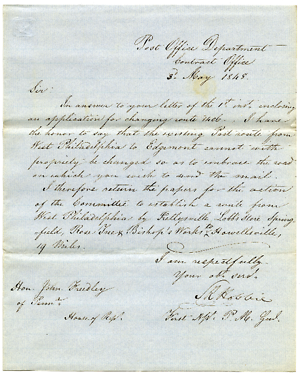 Post Office Department
Contract Office
3d May 1848.
Sir:
In answer to your letter of the 1st inst. enclosing
an application for changing route 2406. I have
the honor to say that the existing Post route from
West Philadelphia to Edgmont cannot with
propriety be changed so as to embrace the road
on which you wish to send the mail.
I therefore return the papers for the action
of the Committee to establish a route from
West Philadelphia by Kellysville, Lobb's Store, Spring
field, Rose Tree & Bishop's Works to Howellville,
14 Miles.
I am respectfully
Your obt. servt.
S R Hobbie
First Ast. P. M. Genl.
Hon. John Freedley
of Penna.
House of Rep.